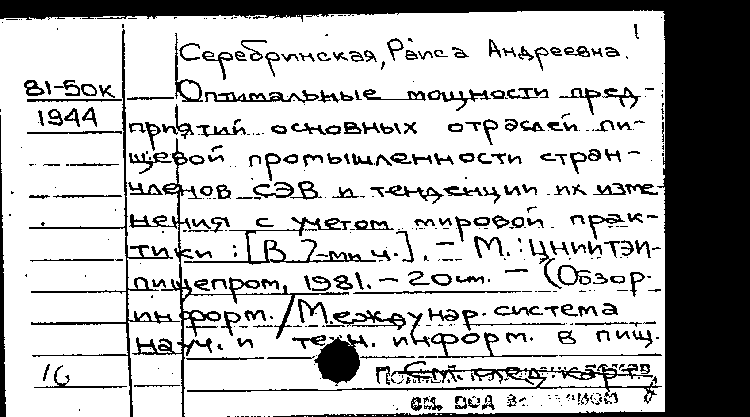 1
Серебринская, Раиса Андреевна.
81-50к
Оптимальные мощности пред-
1944
приятий основных отраслей пи-
щевой промышленности стран-
членов СЭВ и тенденции их изме-
нения с учетом мировой прак-
тики : [В 7-ми ч.]. - М. : ЦНИИТЭИ-
пищепром, 1981. - 20 см. - (Обзор.
информ. / Междунар. система
науч. и техн. информ. в пищ.
16
См. след. карт.
см. под